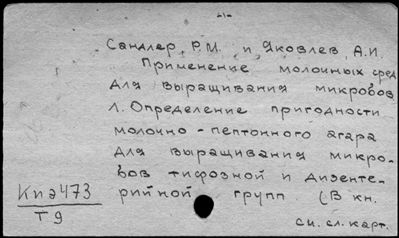 -2-
Сандлер, Р.М. и Яковлев, А.И.
Применение молочных сред
для выращивания микробов
Л. Определение пригодности
молочно-пептонного агара
для выращивания микро-
бов тифозной и дизенте-
рийной групп. (В кн.
см. сл. карт.
Кпэ473
Т9